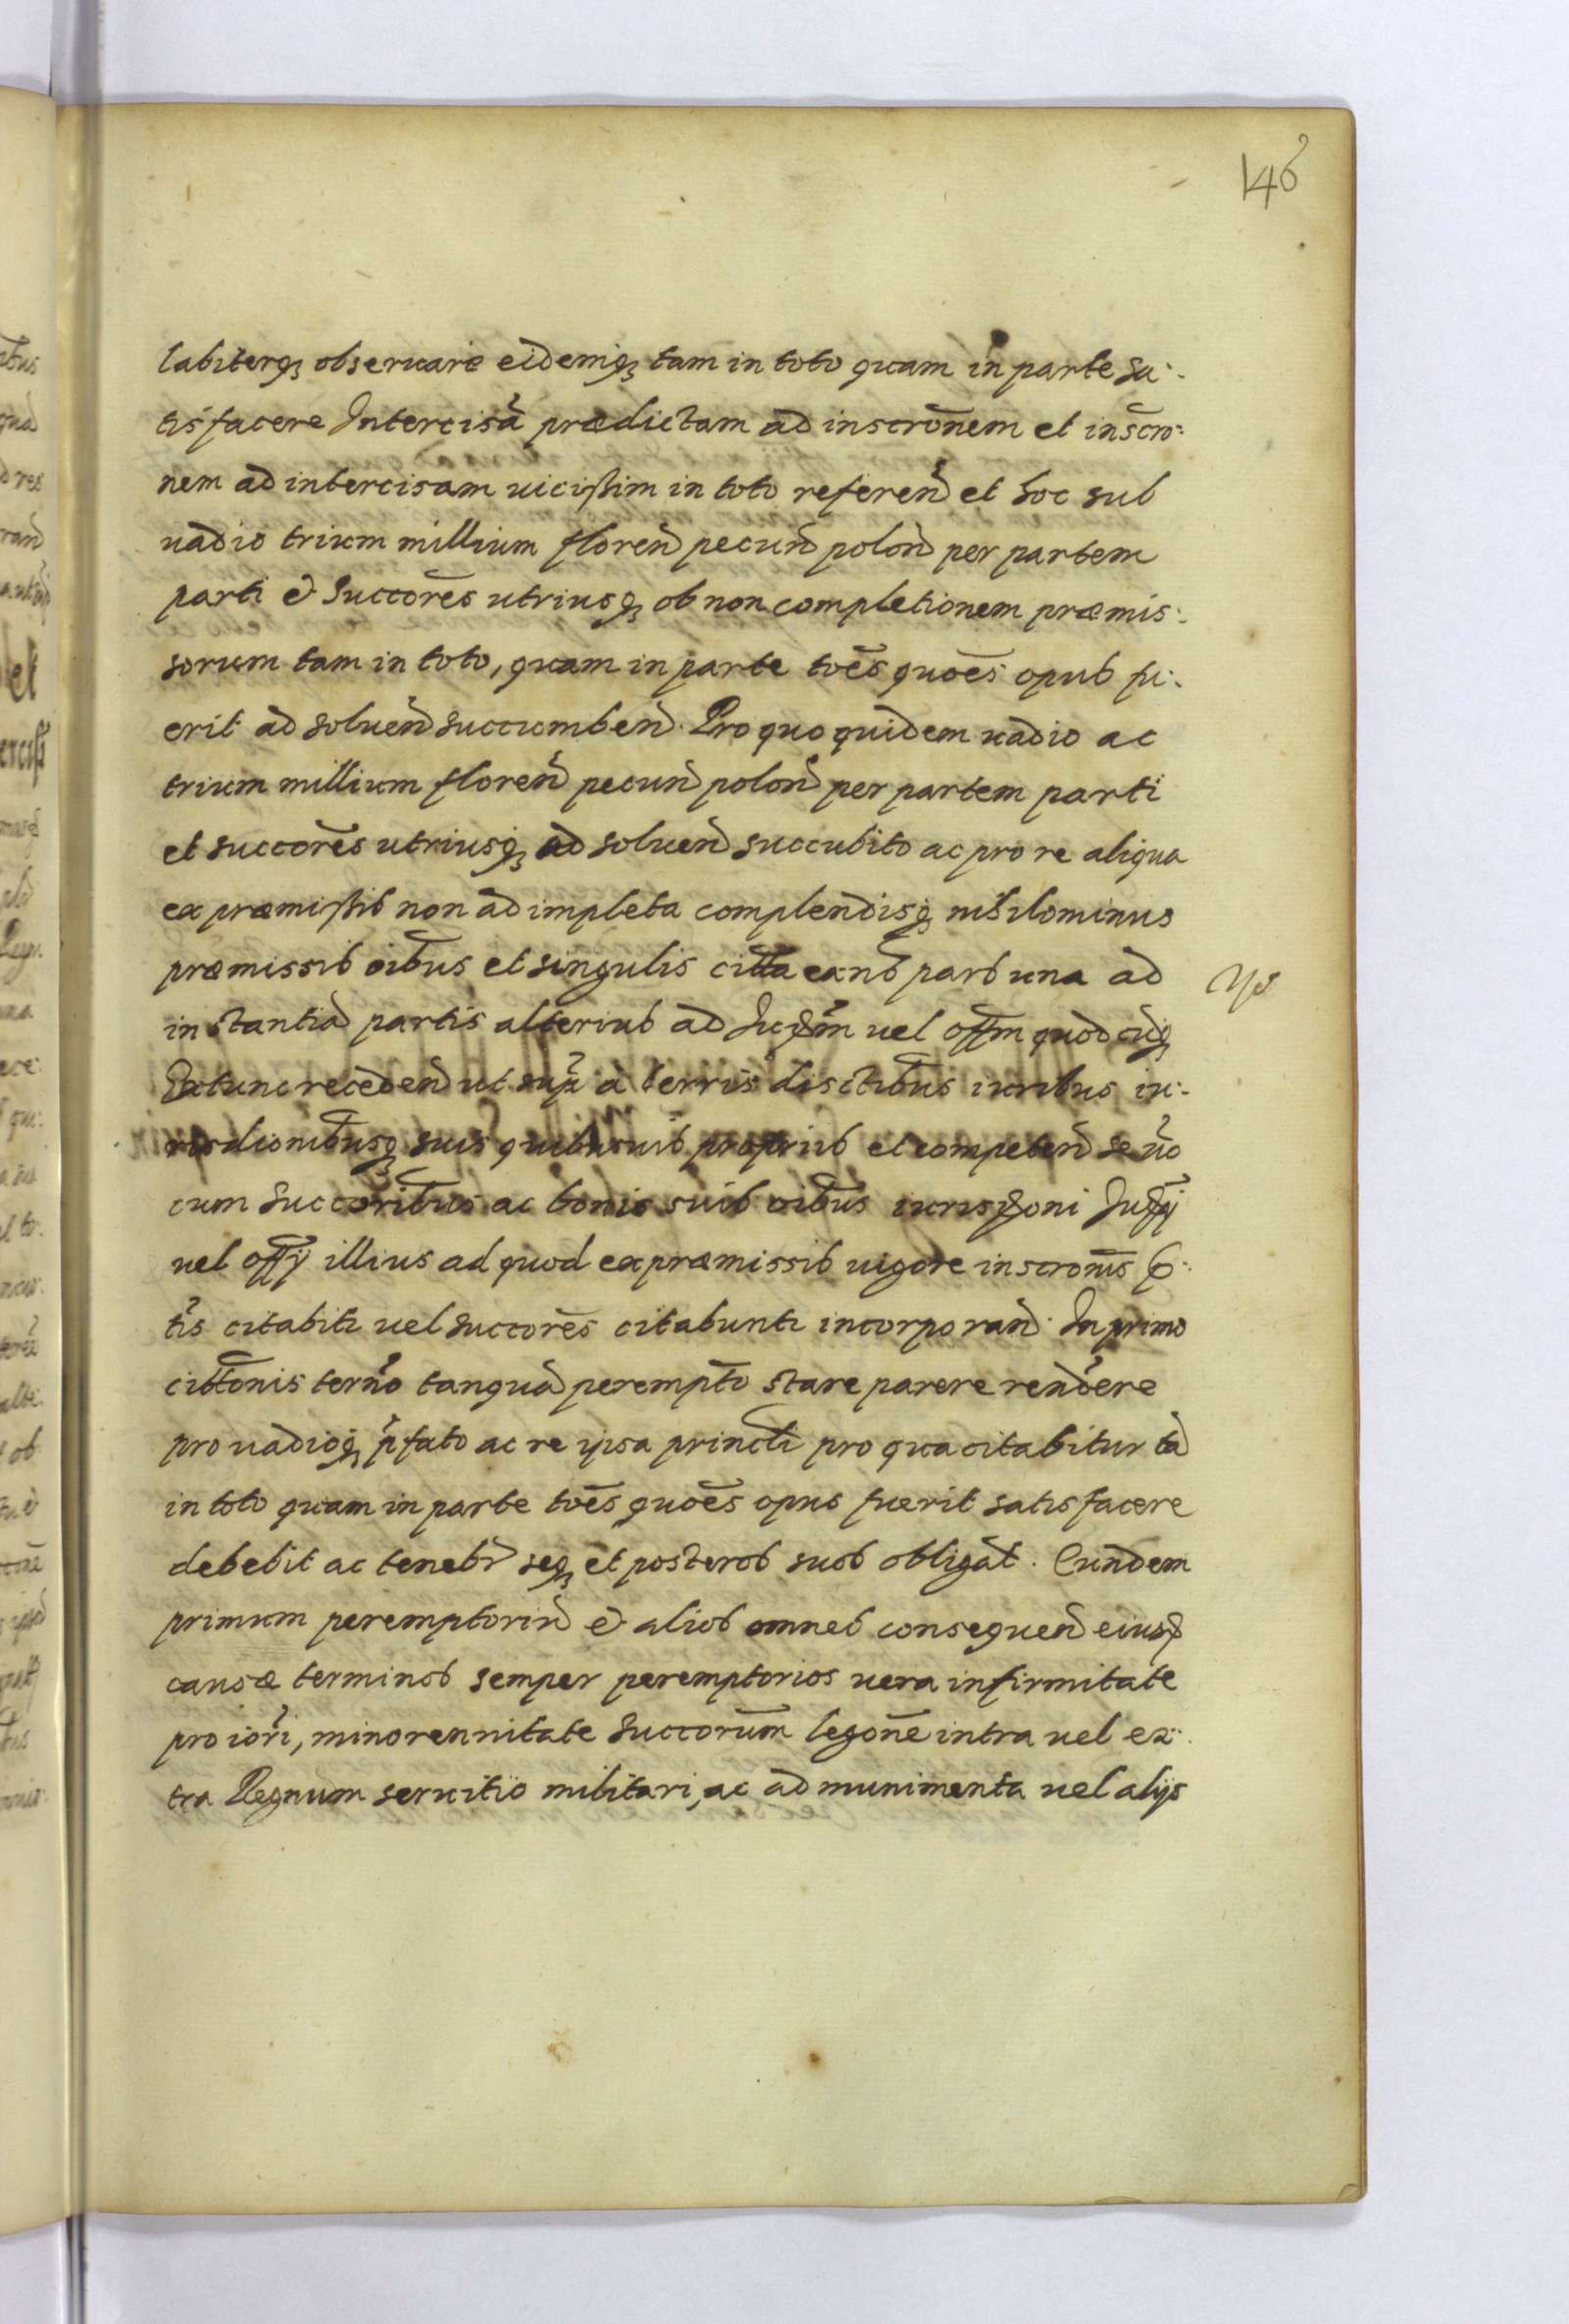 146
labiterq3 obseruare eidemq3 tam in toto quam in parte sa:
tisfacere Intercisã prædictam ad inscrõnem et inscrõ:
nem ad intercisam uicissim in toto referen̄ et hoc sub
uadio trium millium floren̄ pecun̄ polon̄ per partem
parti & Succorẽs utriusq3 ob non completionem præmis:
sorum tam in toto, quam in parte toẽs quoẽs opus fu:
erit ad soluen̄ succumben̄. Pro quo quidem uadio ac
trium millium floren̄ pecun̄ polon̄ per partem parti
et succorẽs utriusq3 ad soluen̄ succubito ac pro re aliqua
ex præmissis non adimpleta complendisq3 nihilominus
præmissis oĩbus et singulis citta pars una ad
instantiã partis alterius ad Jud̃m uel offm quodcũq3
Extunc receden̄ ut sup̃ à terris disctĩbus iuribus iu:
risdionĩbusq3 suis quibusuis proprijs et competen̄ se ũo
cum Succorĩbus ac bonis suis oĩbus iurisd̃oni Jud̃ij
uel offij illius ad quod ex præmissis uigore inscronĩs p:
tĩs citabitr uel succorẽs citabuntr incorporan̄. In primo
cittonĩs ternõ tanquã perempto stare parere rendẽre
pro uadioq3 p̃fato ac re ipsa princli pro qua citabitur tã
in toto quam in parte toẽs quoẽs opus fuerit satisfacere
debebit ac tenebr̃ seq3 et posteros suos obligãt. Eundem
primum peremptoriũ & alios omnes consequen̄ eiusd̃
causæ terminos semper peremptorios uera infirmitate
pro iorĩ, minorennitate Succorũm legonẽ intra uel ex:
tra Regnum seruitio militari, ac ad munimenta uel alijs